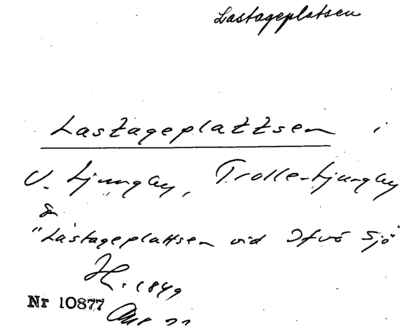 Lastageplatsen
Lastageplattsen i
V. Ljungby, Trolle-Ljungby
&
"Lastageplattsen vid Ifvö Sjö"
H. 1849
Nr 10877